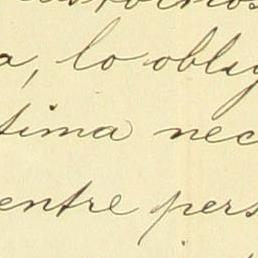 a, lo oblig
tima nec
entre pers